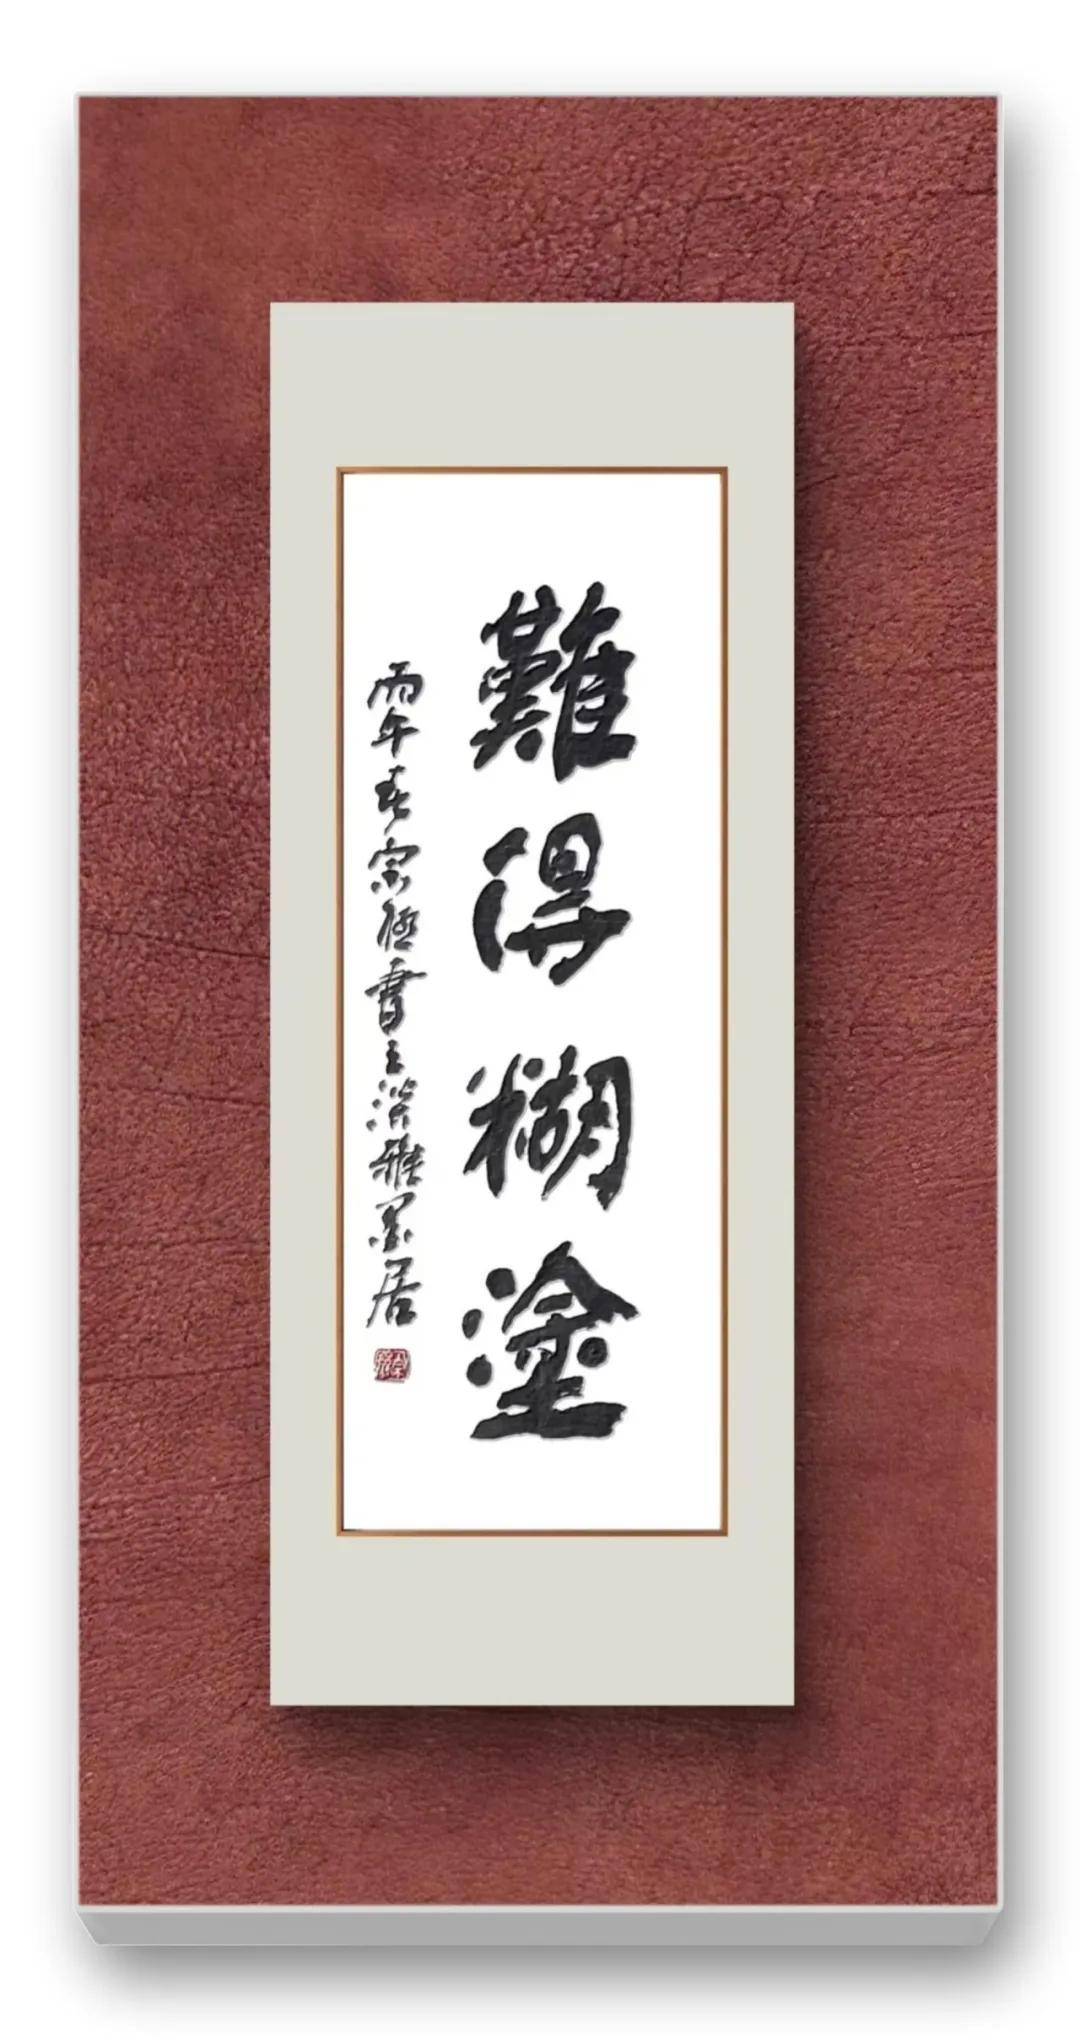 難得糊塗
丙午春宗極書于深雅墨居